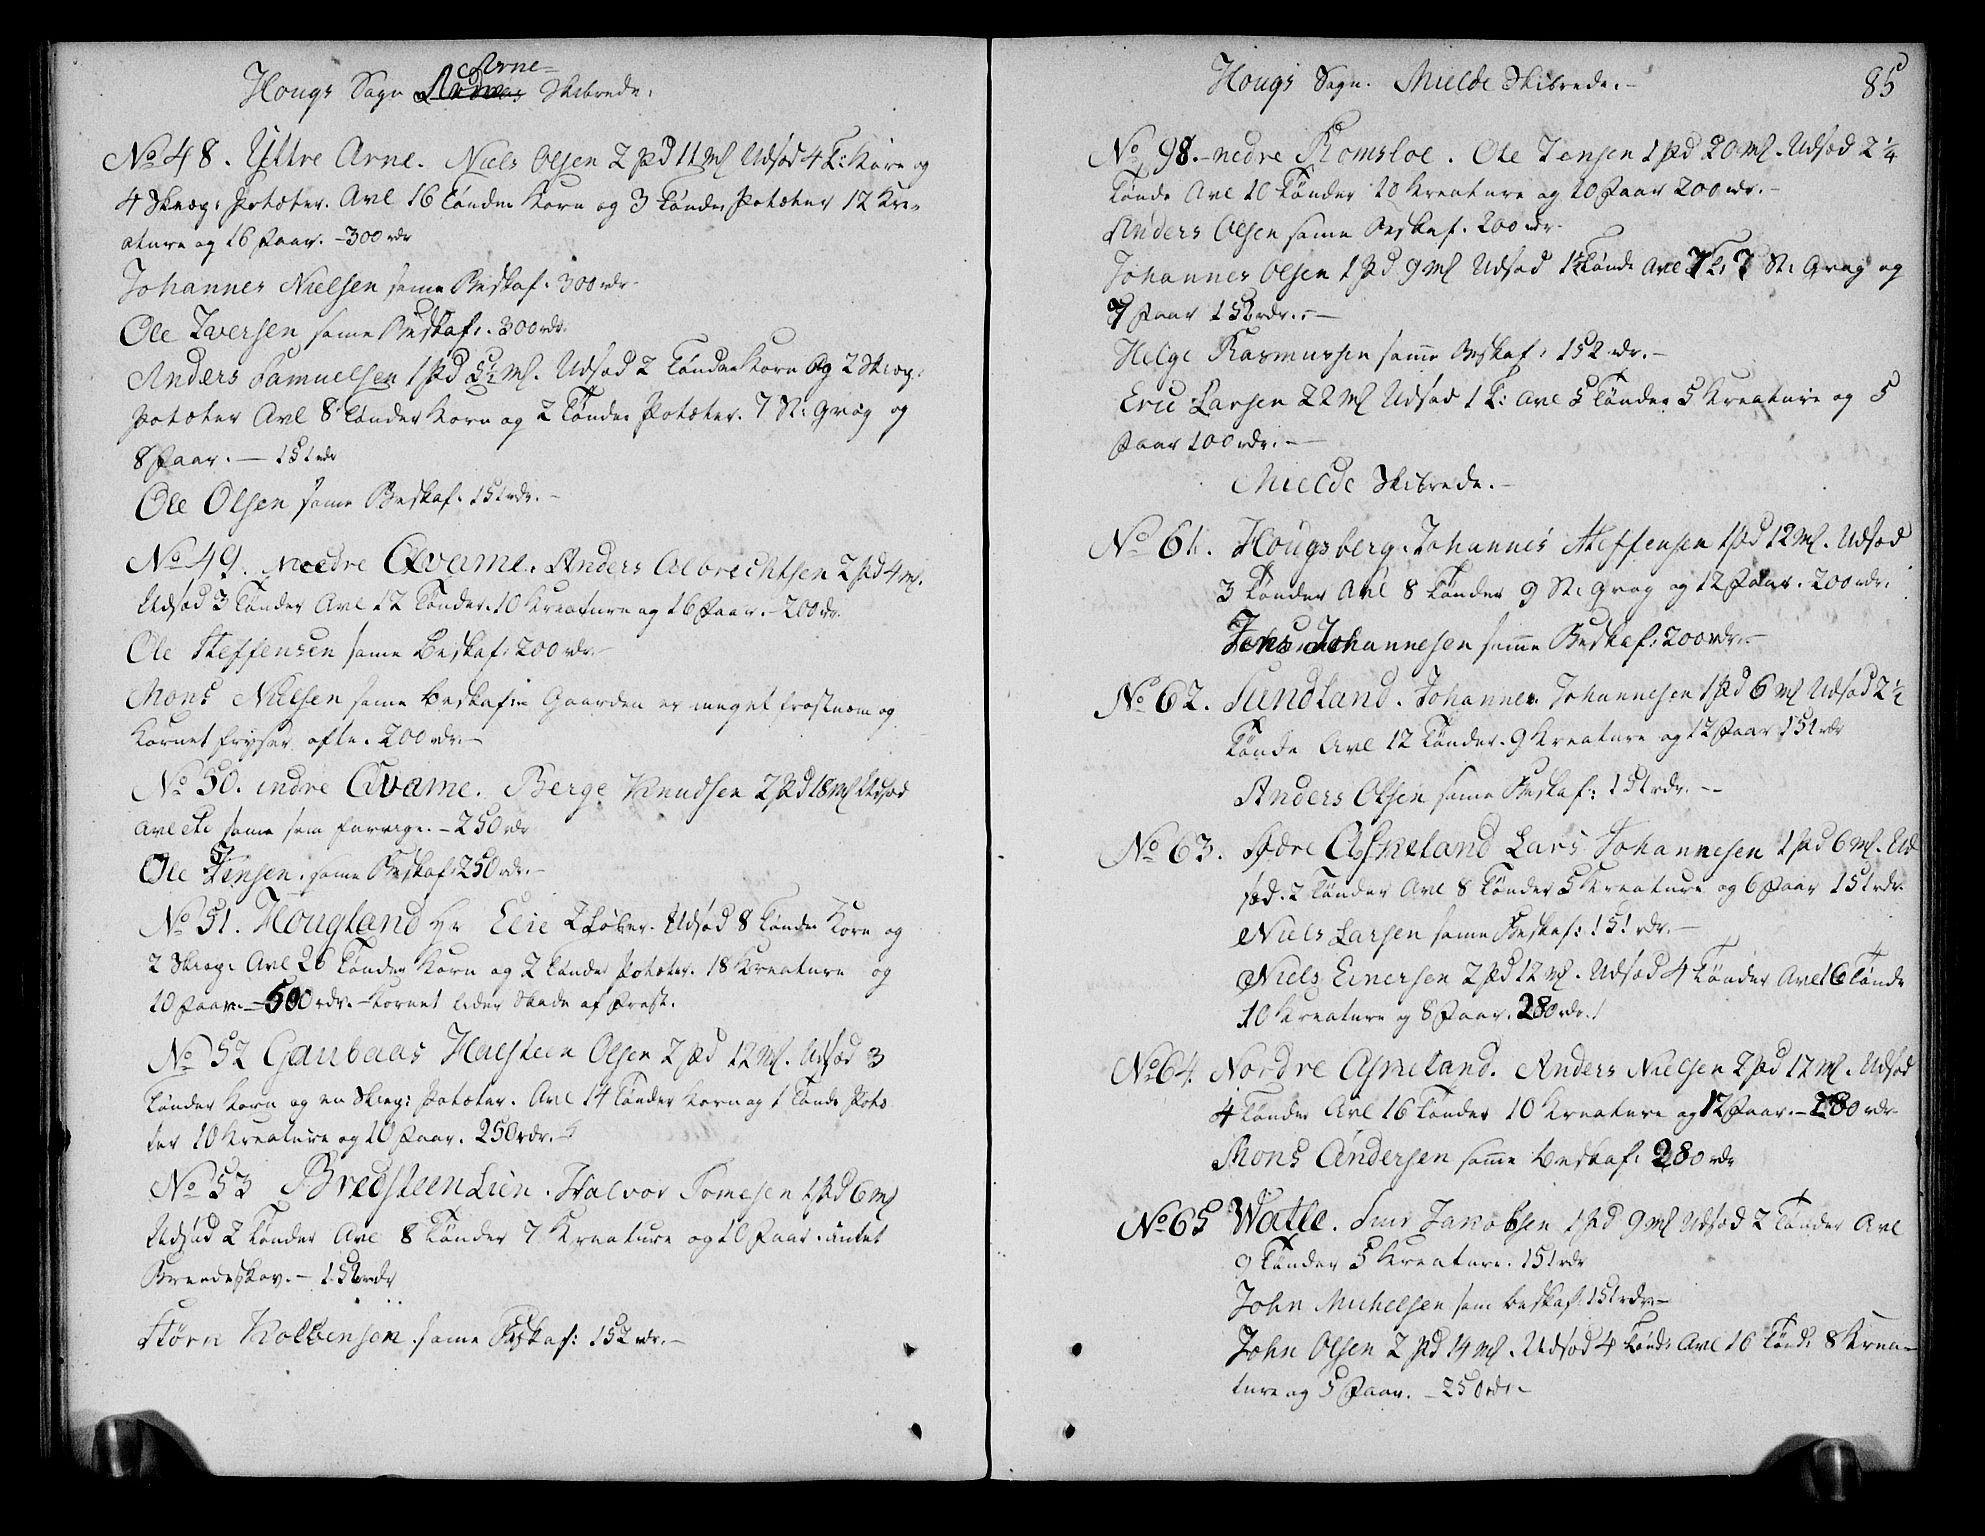 Hougs Sogn Arne-
Skibrede.
No 48. Yttre Arne. Niels Olsen 2 pd 11 ml Udsæd 4 T: Korn og
4 Skiep: Potæter. Avl 16 Tønder Korn og 3 Tønder Potæter 12 Kre-
ature og 16 Faar. - 300 rdr
Johannes Nielsen samme Beskaf: 300 rdr.
Ole Iversen samme Beskaf: 300 rdr.
Anders Samuelsen 1 pd 5½ ml. Udsæd 2 Tønder Korn og 2 Skiep:
Potæter Avl 8 Tønder Korn og 2 Tønder Potæter. 7 St: Qvæg og
8 Faar. - 151 rdr
Ole Olsen samme Beskaf: 151 rdr. -
No 49. Nedre Qvame. Anders Albrechtsen 2 pd 4 ml.
Udsæd 3 Tønder Avl 12 Tønder. 10 Kreature og 16 Faar. - 200 rdr.
Ole Steffensen samme Beskaf: 200 rdr -
Mons Nielsen samme Beskaf: Gaarden er meget frostnæm og
Kornet fryser ofte. 200 rdr. -
No 50. indre Qvame. Berge Knudsen 2 pd 18 ml Udsæd
Avl etc samme som forrige. - 250 rdr
Ole Jensen. samme Beskaf: 250 rdr. -
No 51. Hougland Hr Elie 2 Løber. Udsæd 8 Tønder Korn og
2 Skiep: Avl 26 Tønder Korn og 2 Tønder Potæter. 18 Kreature og
10 Faar. - 500 rdr. - Kornet lider Skade af Frost.
No 52 Gaupaas Halsteen Olsen 2 pd 12 ml. Udsæd 3
Tønder Korn og en Skiep: Potæter. Avl 14 Tønder Korn og 1 Tønde Potæ
ter 10 Kreature og 10 Faar. 250 rdr.
No 53 BredsteenLien. Halvor Tomesen 1 pd 6 ml
Udsæd 2 Tønder Avl 8 Tønder 7 Kreature og 10 Faar. intet
Brændeskov. - 152 rdr
Størn Kolbensen. samme Beskaf: 152 rdr. -
Hougs Sogn. Mielde Skibrede. - 85
No 98. - nedre Romsloe. Ole Jensen 1 pd 20 ml. Udsæd 2¼
Tønde Avl 10 Tønder 10 Kreature og 10 Faar 200 rdr. -
Anders Olsen samme Beskaf. 200 rdr.
Johannes Olsen 1 pd 9 ml Udsæd 1½ Tønde Avl 7 T: 7 St: Qvæg og
7 Faar 152 rdr. -
Helge Rasmussen samme Beskaf: 152 rdr. -
Eric Larsen 22 ml Udsæd 1 T: Avl 5 Tønder 5 Kreature og 5
Faar 100 rdr. -
Mielde Skibrede. -
No 61. Hougsberg. Johannes Steffensen 1 pd 12 ml. Udsæd
3 Tønder Avl 8 Tønder 9 St: Qvæg og 12 Faar. 200 rdr.
Johannesen samme Beskaf: 200 rdr. -
No 62. Sundland. Johannes Johannesen 1 pd 6 ml Udsæd 2½
Tønde Avl 12 Tønder. 9 Kreature og 12 Faar 151 rdr
Anders Olsen samme Beskaf: 151 rdr. -
No 63. Sødre Asheland Lars Johannesen 1 pd 6 ml. Ud
sæd. 2 Tønder Avl 8 Tønder 5 Kreature og 6 Faar 151 rdr.
Niels Larsen samme Beskaf: 151 rdr. -
Niels Einersen 2 pd 12 ml. Udsæd 4 Tønder Avl 16 Tønde
10 Kreature og 8 Faar. 280 rdr.
No 64. Nordre Asheland. Anders Nielsen 2 pd 12 ml. Udsæd
4 Tønder Avl 16 Tønder 10 Kreature og 12 Faar. - 280 rdr
Mons Andersen samme Beskaf: 280 rdr
No 65 Watle. Jacobsen 1 pd 9 ml Udsæd 2 Tønder Avl
9 Tønder 5 Kreature. 151 rdr
John Michelsen sam Beskaf: 151 rdr -
John Olsen 2 pd 14 ml. Udsæd 4 Tønd: Avl 16 Tønd: 8 Krea-
ture og 5 Faar. - 250 rdr. -